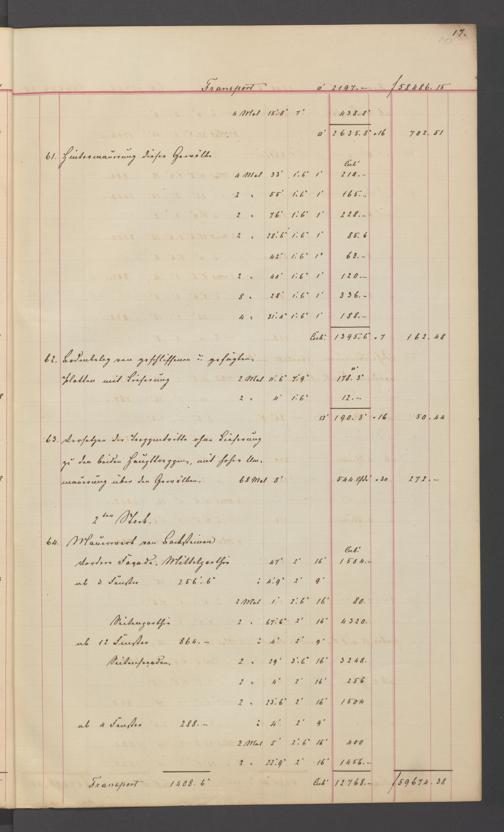 17.
Transport □' 2197.— f 58486.15
4 Mal 15.8' 7' 438.8'
□' 2635.8' à 16 702.51
61. Hintermaurung dieser Gewölbe
Cub'
4 Mal 35' 1.6' 1' 210.—
2 " 55' 1.6' 1' 165.—
2 " 76' 1.6' 1' 228.—
2 " 28.6' 1.6' 1' 85.6
42' 1.6' 1' 63.—
2 " 40' 1.6' 1' 120.—
8 " 28' 1.6' 1' 336.—
4 " 1.6' 1' 188.—
Cub' 1395.6 à 7 162.48
62. Bodenbeleg von geschliffenen u. gefügten
Platten mit Lieferung 2 Mal 11.6' 7.9' 178.3'
2 " 4' 1.6' 12.—
□' 190.3' à 16 50.44
63. Versetzen der Treppentritte ohne Lieferung
zu den beiden Haupttreppen, mit hoher
maurung über den Gewölben. 68 Mal 8' 544 à 30 272.—
2ten Stock.
64. Mauerwerk von Backsteinen Cub'
Vordere Façade, Mittelparthie 47' 2' 16' 1504.—
ab 3 Fenster 256.6' : 4.9' 2' 9'
2 Mal 1' 2.6' 16' 80.
Seitenparthie 2 " 67.6' 2' 16' 4320.
ab 12 Fenster 864.— : 4' 2' 9'
Seitenfaçaden. 2 " 29' 3.6' 16' 3248.
2 " 4' 2' 16' 256
2 " 23.6' 2' 16' 1504
ab 4 Fenster 288.— : 4' 2' 9'
2 Mal 5' 2.6' 16' 400
2 " 22.9' 2' 16' 1456.—
Transport 1408.6' Cub' 12768.— f 59674.38